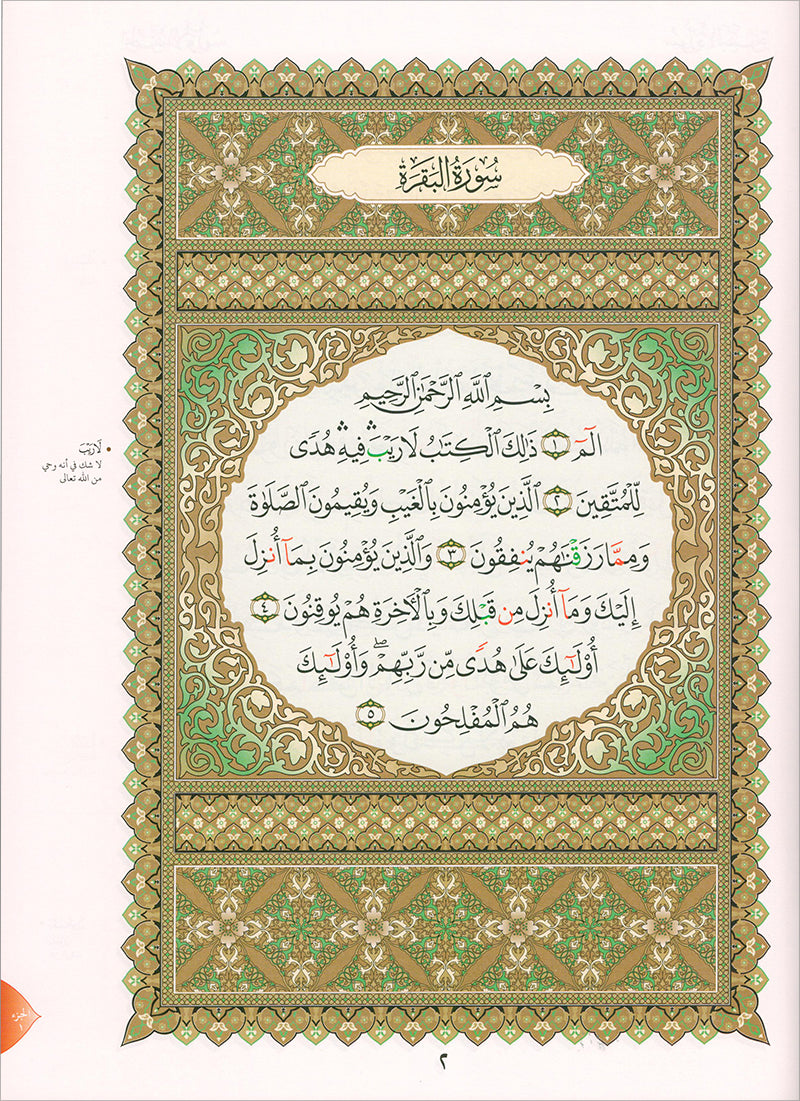 سُورَةُ الْبَقَرَةِ
بِسْمِ ٱللَّهِ ٱلرَّحْمَٰنِ ٱلرَّحِيمِ
الٓمٓ ١ ذَٰلِكَ ٱلْكِتَٰبُ لَا رَيْبَ ۛ فِيهِ ۛ هُدًى
لِّلْمُتَّقِينَ ٢ ٱلَّذِينَ يُؤْمِنُونَ بِٱلْغَيْبِ وَيُقِيمُونَ ٱلصَّلَوٰةَ
وَمِمَّا رَزَقْنَٰهُمْ يُنفِقُونَ ٣ وَٱلَّذِينَ يُؤْمِنُونَ بِمَآ أُنزِلَ
إِلَيْكَ وَمَآ أُنزِلَ مِن قَبْلِكَ وَبِٱلْءَاخِرَةِ هُمْ يُوقِنُونَ ٤
أُو۟لَٰٓئِكَ عَلَىٰ هُدًى مِّن رَّبِّهِمْ ۖ وَأُو۟لَٰٓئِكَ
هُمُ ٱلْمُفْلِحُونَ ٥
لَا رَيْبَ
لا شك في أنه وحي
من الله تعالى
الجزء
١
٢